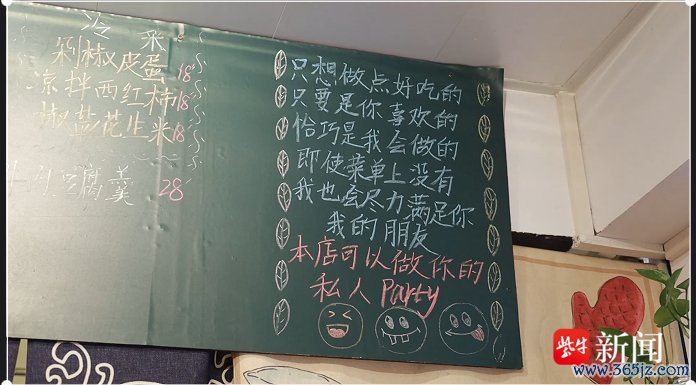 冷菜
剁椒皮蛋 18
凉拌西红柿 18
椒盐花生米 18
豆腐羹 28
只想做点好吃的
只要是你喜欢的
恰巧是我会做的
即使菜单上没有
我也会尽力满足你
我的朋友
本店可以做你的
私人Party
紫牛新闻
www.365jz.com